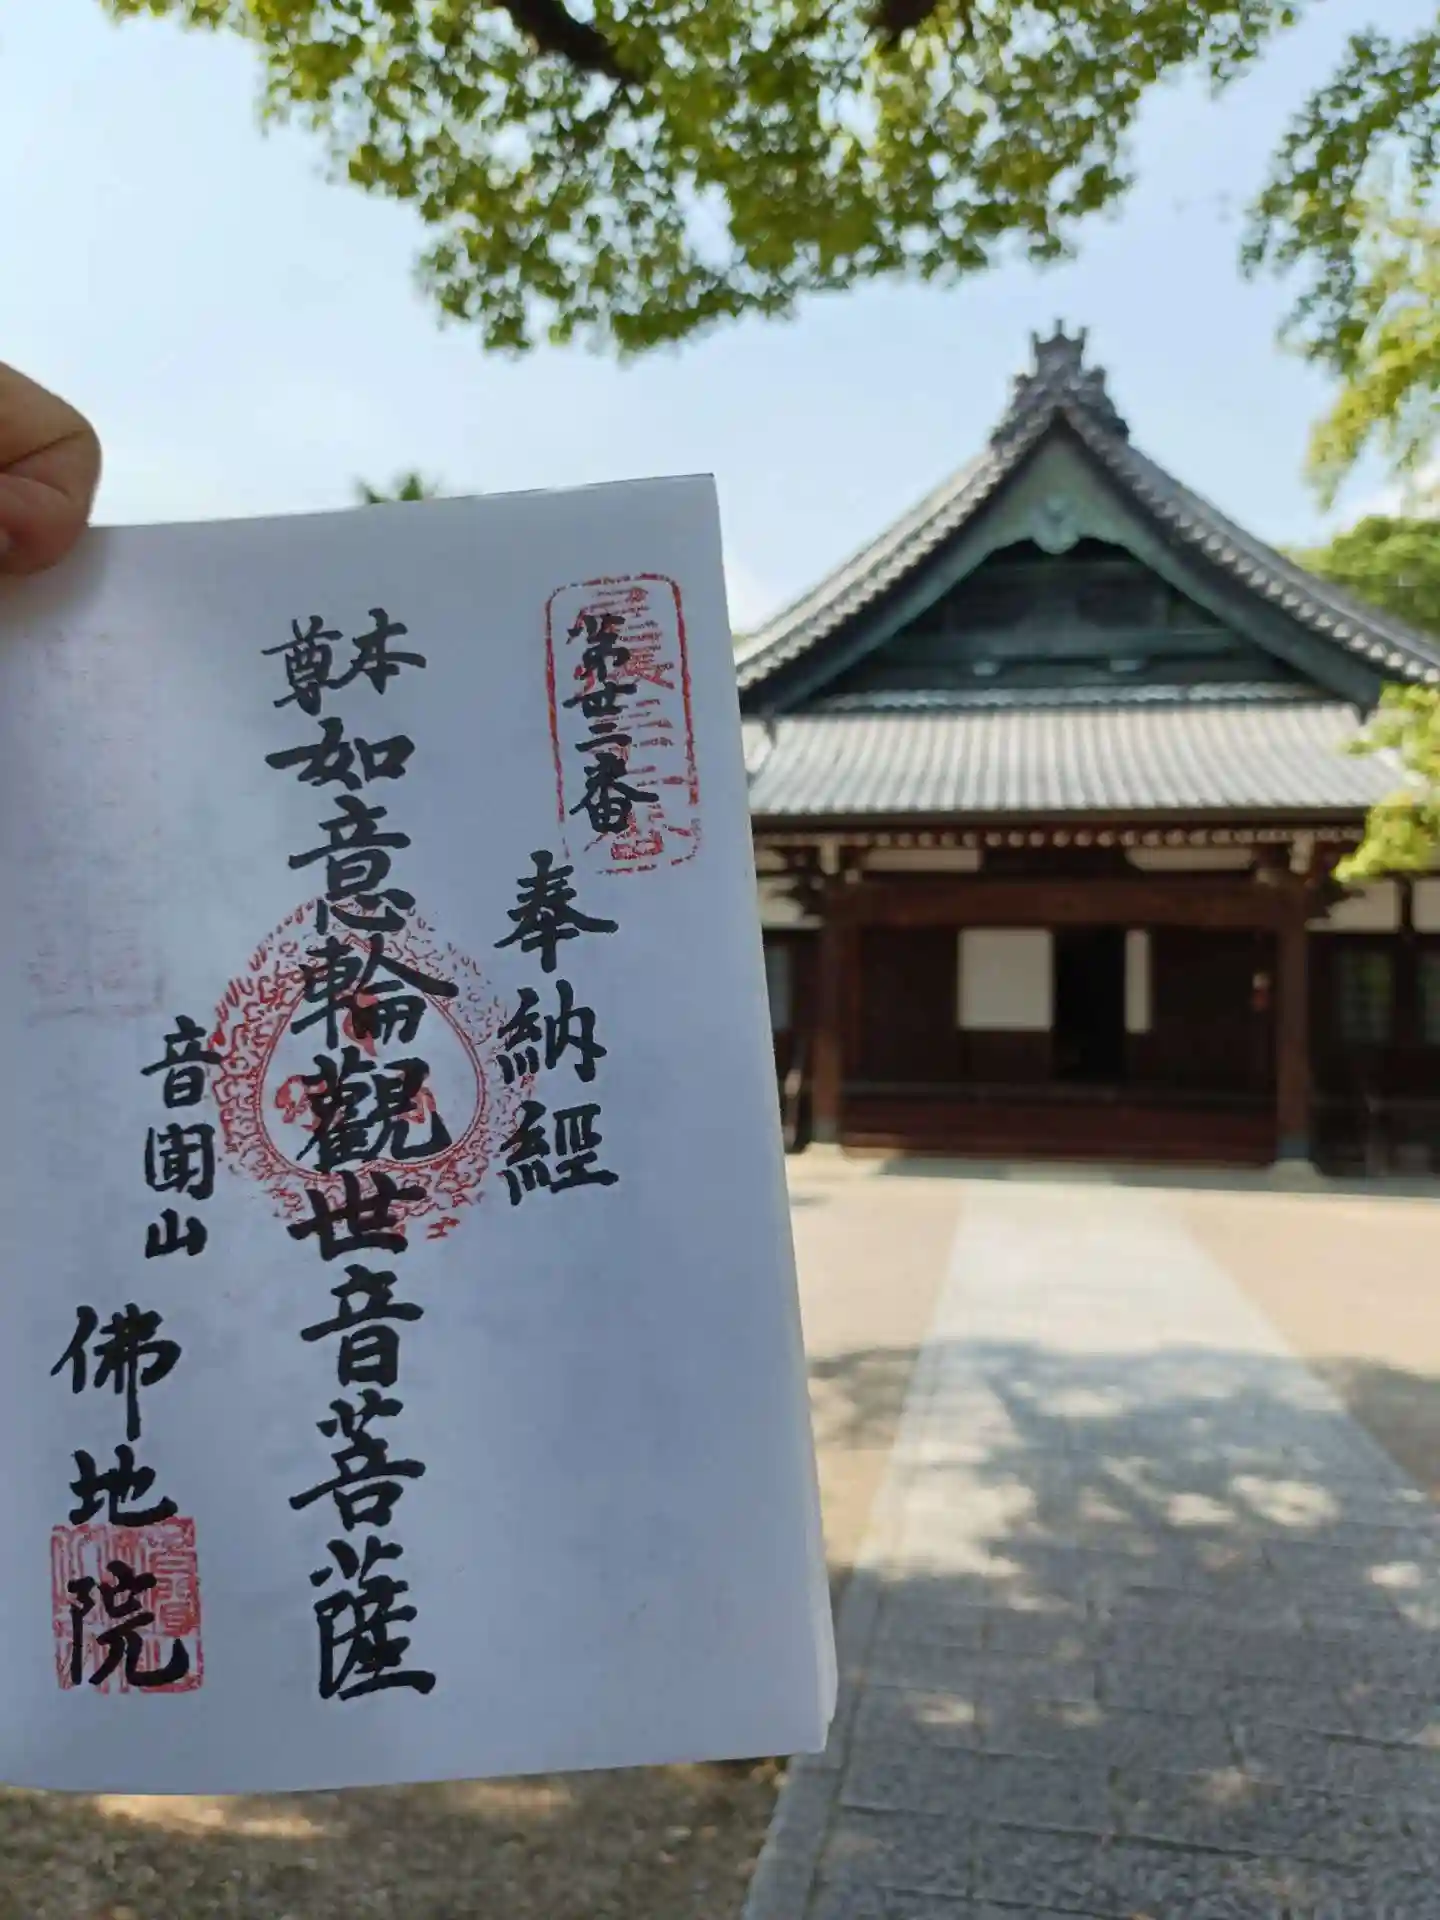 第廿二番
奉納經
本尊
如意輪觀世音菩薩
音圃山
佛地院